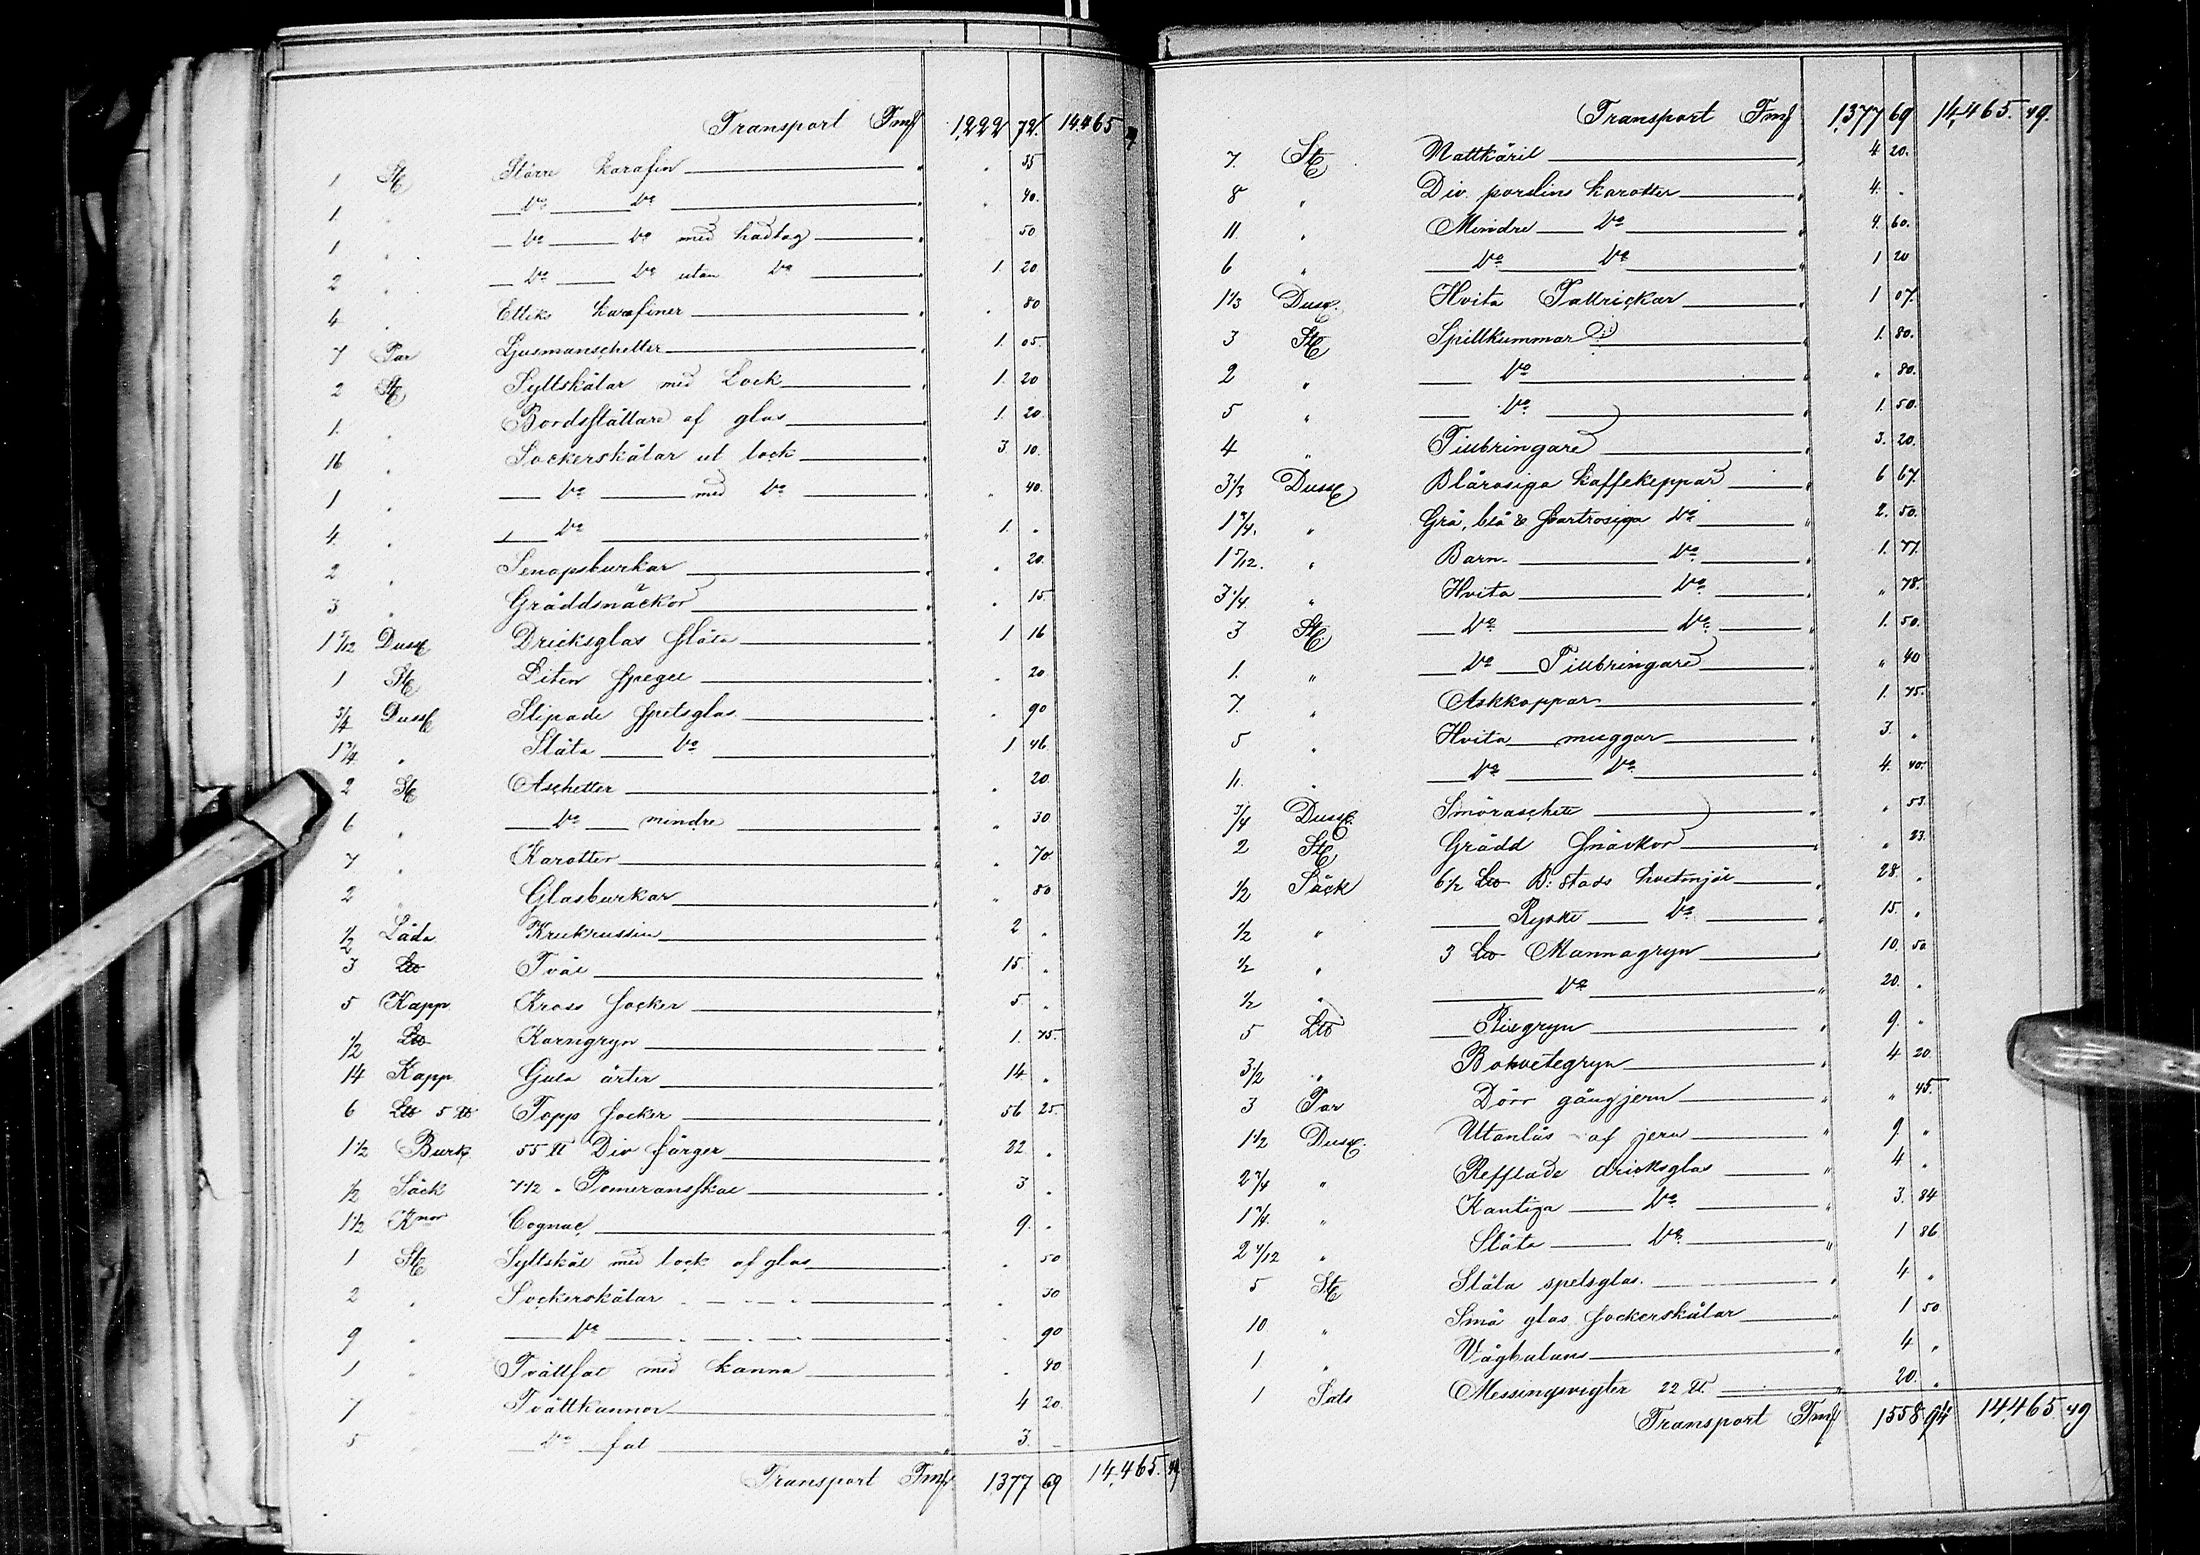 Transport Fmk 1,222 72. 14,465 49
1 St Större karafin " . 35
1. " Do Do " . 40.
1 " Do Do med hadtag " 50
2 " Do Do utan Do " 1. 20
4 " Ettiks karafiner " . 80
7 Par Ljusmanschetter " 1. 05.
2 St Syltskålar med Lock " 1. 20
1. " Bordsflättare af glas " 1. 20
16 " Sockerskålar ut lock " 3. 10.
1 " Do med Do " . 40.
4. " " Do " 1. "
2 " Senapsburkar " . 20.
3 " Gräddsnäckor " . 15.
1 5/12 Duss Dricksglas släta " 1 16
1 St Liten spegel " . 20
3/4 Duss Slipade spetsglas " . 90
1 3/4 " Släta Do " 1 46.
2 St Aschetter " . 20.
6 " Do mindre " " 30
7 " Karotter " . 70
2 " Glasburkar " " 80
1/2 Låda Krukrussin " 2 "
3 L℔ Tvål " 15. "
5 Kapp Kross socker " 5 "
1/2 L℔ Korngryn " 1. 75.
14 Kapp Gula ärter " 14 "
6 L℔ 5 ℔ Topp socker " 56 25.
1 1/2 Burk 55 ℔ Div färger " 22 "
1/2 Säck 7 1/2 " Pomeransskal " 3 "
1 1/2 Knor Cognac " 9. "
1 St Syltskål med lock af glas " . 50
2 " Sockerskålar " . 30
9 " Do " . 90
1 " Tvättfat med kanna " . 80
7 " Tvättkannor " 4 20.
5 " Do fat " 3. -
Transport Fmk 1377 69 14,465. 49
Transport Fmk 1,377 69 14,465. 49.
7. St Nattkäril " 4 20.
8 " Div. porslins karotter " 4. "
11. " Mindre Do " 4. 60.
6 " Do Do " 1 20
1 1/3 Duss. Hvita Tallrickar " 1 07.
3 St Spillkummar " 1. 80.
2 " Do " " 80.
5 " Do " 1. 50.
4 " Tillbringare " 3. 20.
3 1/3 Duss Blårosiga kaffekoppar " 6 67.
1 3/4. " Grå, blå & svartrosiga Do " 2. 50.
1 5/12. " Barn- Do " 1. 77.
3 1/4. " Hvita Do " " 78.
3 St. Do Do " 1. 50.
1. " Do Tillbringare " " 40
7. " Askkoppar " 1. 75.
5 " Hvita muggar " 3. "
11. " Do Do " 4. 40.
3/4 Duss. Smöraschett " " 53.
2 St Grädd snäckor " " 23.
1/2 Säck 6 1/2 L℔ B: stads hvetmjöl " 28. "
1/2 " Ryskt Do " 15. "
1/2 " 3 L℔ Mannagryn " 10. 50.
1/2 " Do " 20. "
5 L℔ Risgryn " 9. "
3 1/2 " Bohvetegryn " 4 20.
3 Par Dörr gångjern " " 45.
1 1/2 Duss. Utanlås af jern " 9. "
2 3/4 " Refflade dricksglas " 4 "
1 3/4. " Kantiga Do " 3. 84
2 4/12 " Släta Do " 1 86
5 St Släta spetsglas. " 4 "
10 " Små glas sockerskålar " 1 50.
1 " Vågbalans " 4 "
1 Sats Messingsvigter 22 ℔. " 20. "
Transport Fmk 1558 94 14,465 49